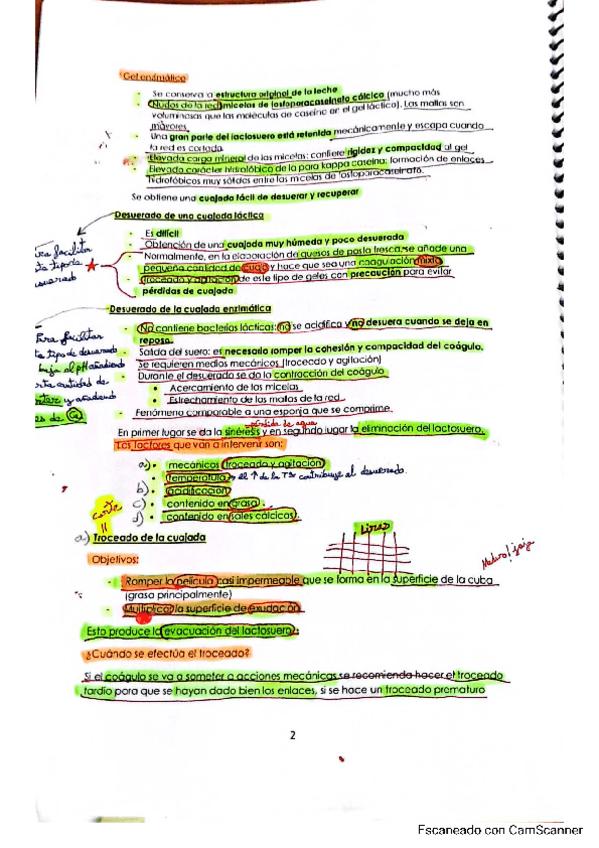 Gel enzimático
- Se conserva a estructura original de la leche
- Nudos de la red: micelas de fosfoparacaseinato cálcico (mucho más
voluminosas que las moléculas de caseína en el gel láctico). Las mallas son
mayores
- Una gran parte del lactosuero está retenida mecánicamente y escapa cuando
la red es cortada
- Elevada carga mineral de las micelas: confiere rigidez y compacidad al gel
- Elevado carácter hidrofóbico de la para kappa caseína: formación de enlaces
hidrofóbicos muy sólidos entre las micelas de fosfoparacaseinato.
Se obtiene una cuajada fácil de desuerar y recuperar
Desuerado de una cuajada láctica
- Es difícil
- Obtención de una cuajada muy húmeda y poco desuerada
- Normalmente, en la elaboración de quesos de pasta fresca se añade una
pequeña cantidad de cuajo y hace que sea una coagulación mixta
- Troceado y agitación de este tipo de geles con precaución para evitar
pérdidas de cuajada
facilitar
tipo de
Desuerado de la cuajada enzimática
- No contiene bacterias lácticas: no se acidifica y no desuera cuando se deja en
reposo.
- Salida del suero: es necesario romper la cohesión y compacidad del coágulo.
Se requieren medios mecánicos (troceado y agitación)
- Durante el desuerado se da la contracción del coágulo
• Acercamiento de las micelas
• Estrechamiento de las mallas de la red
- Fenómeno comparable a una esponja que se comprime.
Para facilitar
tipo de desuerado
baja el pH añadiendo
cantidades de
y añadiendo
de Ca
pérdida de agua
En primer lugar se da la sinéresis y en segundo lugar la eliminación del lactosuero.
Los factores que van a intervenir son:
a) • mecánicos (troceado y agitación)
• temperatura → el ↑ de la Tª contribuye al desuerado.
b) • acidificación
c) • contenido en grasa
d) • contenido en sales cálcicas.
corte
a) Troceado de la cuajada
Liras
Objetivos:
- Romper la película casi impermeable que se forma en la superficie de la cuba
(grasa principalmente)
- Multiplicar la superficie de exudación
Esto produce la evacuación del lactosuero.
¿Cuándo se efectúa el troceado?
Si el coágulo se va a someter a acciones mecánicas se recomienda hacer el troceado
tardío para que se hayan dado bien los enlaces, si se hace un troceado prematuro
2
Escaneado con CamScanner